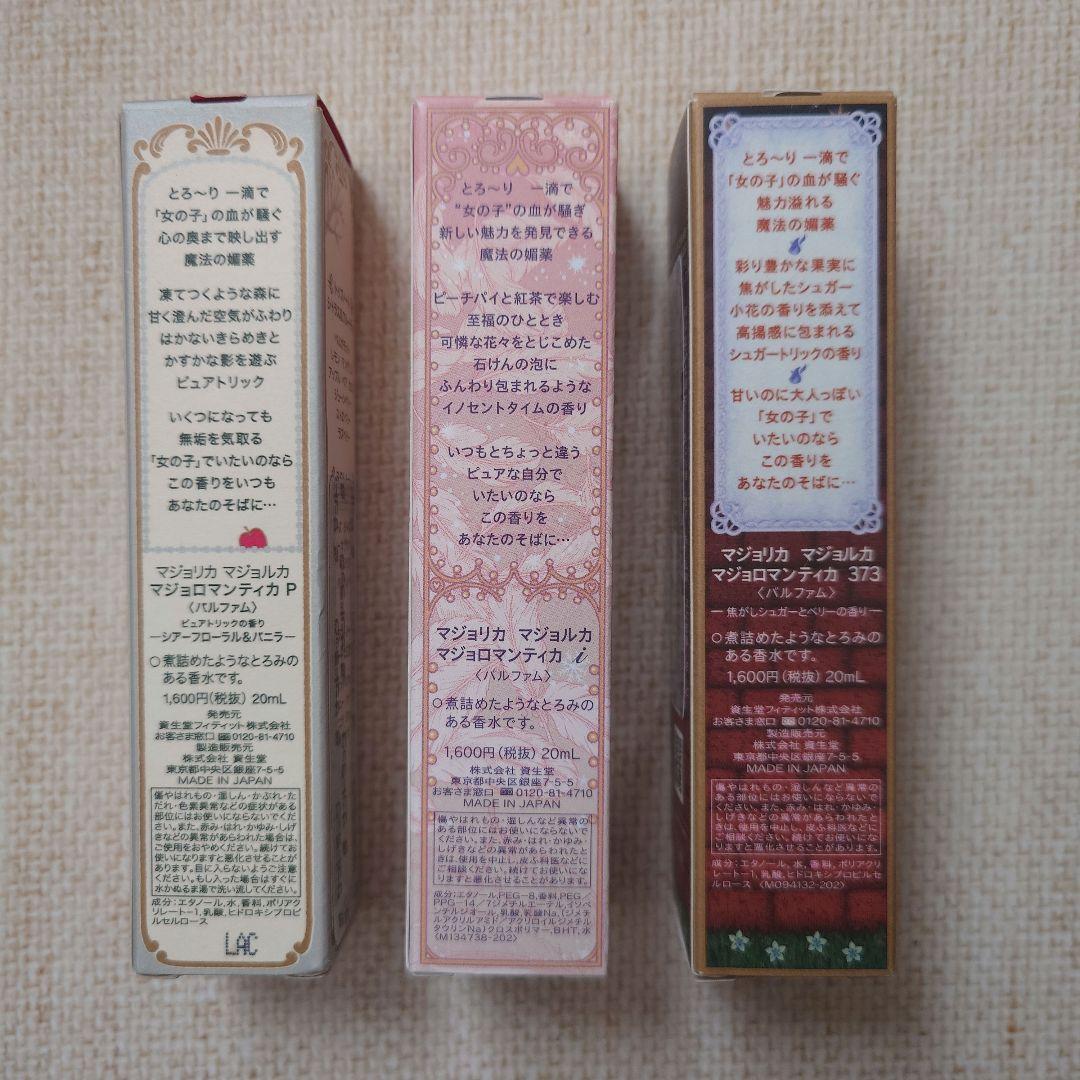 とろ〜り 一滴で
「女の子」の血が騒ぐ
心の奥まで映し出す
魔法の媚薬
凍てつくような森に
甘く澄んだ空気がふわり
はかないきらめきと
かすかな影を遊ぶ
ピュアトリック
いくつになっても
無垢を気取る
「女の子」でいたいのなら
この香りをいつも
あなたのそばに…
マジョリカ マジョルカ
マジョロマンティカ P
〈パルファム〉
ピュアトリックの香り
—シアーフローラル&バニラ—
○煮詰めたようなとろみの
ある香水です。
1,600円(税抜) 20mL
発売元
資生堂フィティット株式会社
お客さま窓口 0120-81-4710
製造販売元
株式会社 資生堂
東京都中央区銀座7-5-5
MADE IN JAPAN
傷やはれもの・湿しん・かぶれ・た
だれ・色素異常などの症状がある
部位にはお使いにならないでくだ
さい。また、赤み・はれ・かゆみ・しげ
きなどの異常があらわれた場合は、
ご使用をおやめください。続けてお
使いになりますと悪化させることが
あります。目に入らないようご注意
ください。もし入った場合はすぐに
水かぬるま湯で洗い流してください。
成分:エタノール,水,香料,ポリアク
リレート-1,乳酸,ヒドロキシプロピ
ルセルロース
LAC
とろ〜り 一滴で
“女の子”の血が騒ぎ
新しい魅力を発見できる
魔法の媚薬
ピーチパイと紅茶で楽しむ
至福のひととき
可憐な花々をとじこめた
石けんの泡に
ふんわり包まれるような
イノセントタイムの香り
いつもとちょっと違う
ピュアな自分で
いたいのなら
この香りを
あなたのそばに…
マジョリカ マジョルカ
マジョロマンティカ i
〈パルファム〉
○煮詰めたようなとろみの
ある香水です。
1,600円(税抜) 20mL
株式会社 資生堂
東京都中央区銀座7-5-5
お客さま窓口 0120-81-4710
MADE IN JAPAN
傷やはれもの・湿しんなど異常の
ある部位にはお使いにならないで
ください。また、赤み・はれ・かゆみ・
しげきなどの異常があらわれたと
きは、使用を中止し、皮ふ科医などに
ご相談ください。続けてお使いにな
りますと悪化させることがあります。
成分:エタノール,PEG-8,香料,PEG/
PPG-14/7ジメチルエーテル,イソペ
ンチルジオール,乳酸,乳酸Na,(ジメ
チルアクリルアミド/アクリロイルジメチル
タウリンNa)クロスポリマー,BHT,水
〈M134738-202〉
とろ〜り 一滴で
「女の子」の血が騒ぐ
魅力溢れる
魔法の媚薬
彩り豊かな果実に
焦がしたシュガー
小花の香りを添えて
高揚感に包まれる
シュガートリックの香り
甘いのに大人っぽい
「女の子」で
いたいのなら
この香りを
あなたのそばに…
マジョリカ マジョルカ
マジョロマンティカ 373
〈パルファム〉
— 焦がしシュガーとベリーの香り —
○煮詰めたようなとろみの
ある香水です。
1,600円(税抜) 20mL
発売元
資生堂フィティット株式会社
お客さま窓口 0120-81-4710
製造販売元
株式会社 資生堂
東京都中央区銀座7-5-5
MADE IN JAPAN
傷やはれもの・湿しんなど異常の
ある部位にはお使いにならないで
ください。また、赤み・はれ・かゆみ・
しげきなどの異常があらわれたと
きは、使用を中止し、皮ふ科医などに
ご相談ください。続けてお使いにな
りますと悪化させることがあります。
成分:エタノール,水,香料,ポリアクリ
レート-1,乳酸,ヒドロキシプロピルセ
ルロース 〈M094132-202〉